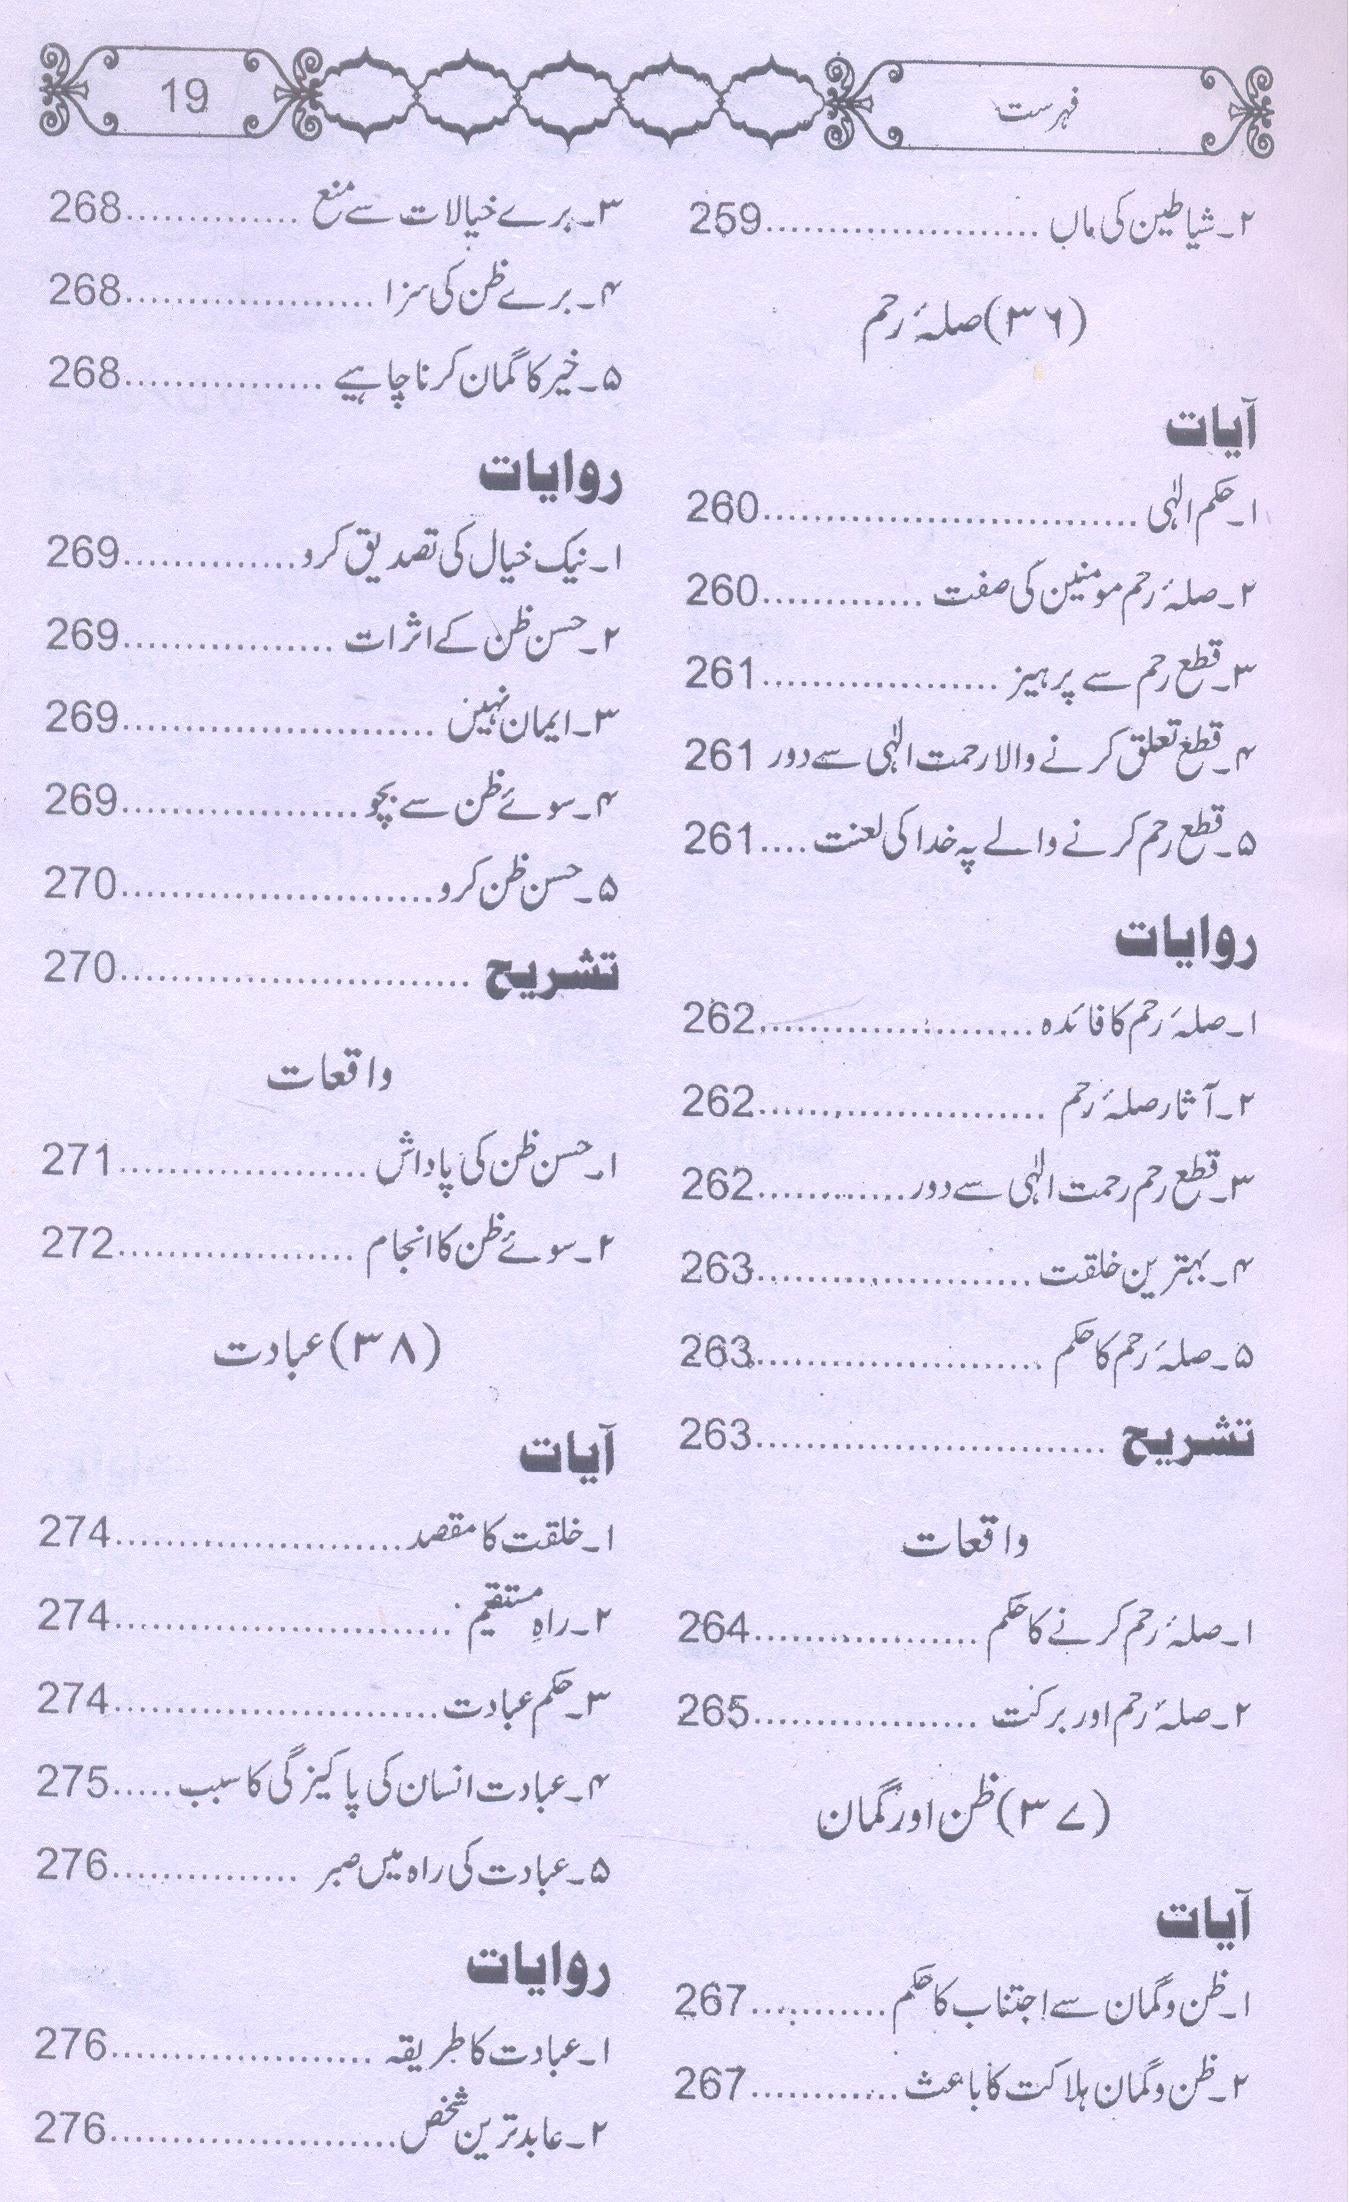 فہرست
19
۲۔شیاطین کی ماں ......................259
(۳۶)صلہٴ رحم
آیات
۱۔حکم الٰہی ..............................260
۲۔صلہٴ رحم مومنین کی صفت .............260
۳۔قطع رحم سے پرہیز ...................261
۴۔قطع تعلق کرنے والا رحمت الٰہی سے دور 261
۵۔قطع رحم کرنے والے پہ خدا کی لعنت ....261
روایات
۱۔صلہٴ رحم کا فائدہ ......................262
۲۔آثار صلہٴ رحم .......................262
۳۔قطع رحم رحمت الٰہی سے دور............262
۴۔بہترین خلقت ......................263
۵۔صلہٴ رحم کا حکم .......................263
تشریح ............................263
واقعات
۱۔صلہٴ رحم کرنے کا حکم ..................264
۲۔صلہٴ رحم اور برکت ..................265
(۳۷)ظن اور گمان
آیات
۱۔ظن و گمان سے اجتناب کا حکم ...........267
۲۔ظن و گمان ہلاکت کا باعث ............267
۳۔برے خیالات سے منع ..............268
۴۔برے ظن کی سزا ....................268
۵۔خیر کا گمان کرنا چاہیے ................268
روایات
۱۔نیک خیال کی تصدیق کرو..............269
۲۔حسن ظن کے اثرات .................269
۳۔ایمان نہیں .........................269
۴۔سوئے ظن سے بچو ...................269
۵۔حسن ظن کرو.........................270
تشریح ............................270
واقعات
۱۔حسن ظن کی پاداش ....................271
۲۔سوئے ظن کا انجام ...................272
(۳۸)عبادت
آیات
۱۔خلقت کا مقصد.......................274
۲۔راہِ مستقیم ...........................274
۳۔حکم عبادت..........................274
۴۔عبادت انسان کی پاکیزگی کا سبب .....275
۵۔عبادت کی راہ میں صبر ...............276
روایات
۱۔عبادت کا طریقہ .....................276
۲۔عابد ترین شخص.......................276